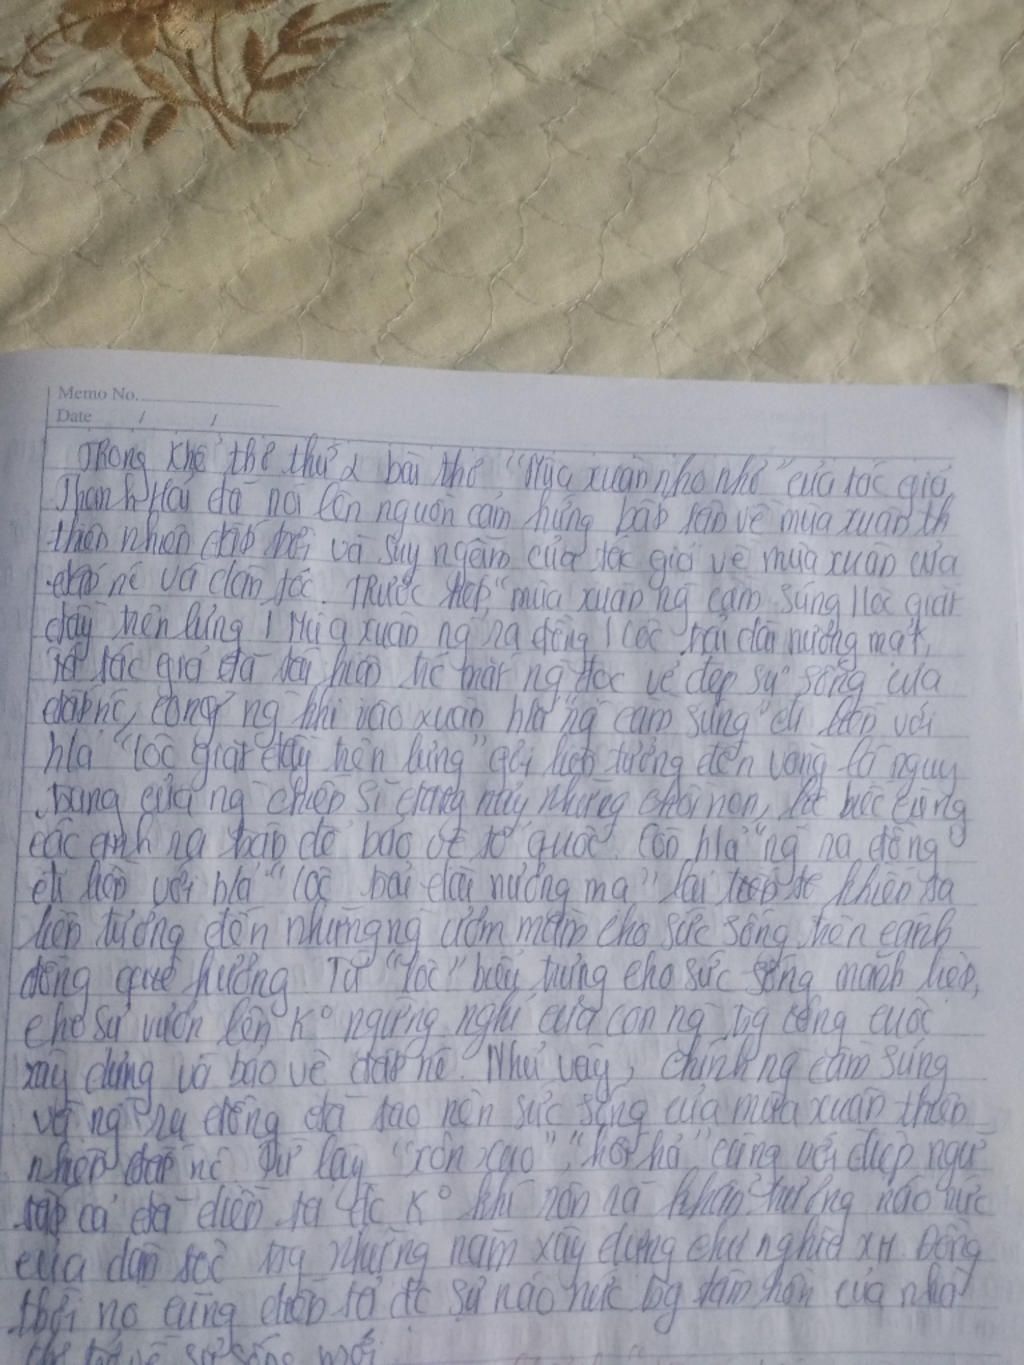 Memo No.
Date / /
Trong khổ thơ thứ 2 bài thơ "Mùa xuân nho nhỏ" của tác giả
Thanh Hải đã nói lên nguồn cảm hứng bất tận về mùa xuân th
thiên nhiên đất trời và suy ngẫm của tác giả về mùa xuân của
đất nc và dân tộc. Trước hết, "mùa xuân ng cầm súng / lộc giắt
đầy trên lưng / Mùa xuân ng ra đồng / lộc trải dài nương mạ",
tác giả đã tái hiện trc mắt ng đọc vẻ đẹp sự sống của
đất nc, con ng khi vào xuân. h/a "ng cầm súng" đi liền với
h/a "lộc giắt đầy trên lưng" gợi liên tưởng đến vòng lá nguỵ
trang của ng chiến sĩ đang nảy những chồi non, lộc biếc cùng
các anh ra trận để bảo vệ tổ quốc. Còn h/a "ng ra đồng"
đi liền với h/a "lộc trải dài nương mạ" lại khiến ta
liên tưởng đến những ng ươm mầm cho sức sống trên cánh
đồng quê hương. Từ "lộc" biểu trưng cho sức sống mãnh liệt,
cho sự vươn lên k° ngừng nghỉ của con ng trg công cuộc
xây dựng và bảo vệ đất nc. Như vậy, chính ng cầm súng
và ng ra đồng đã tạo nên sức sống của mùa xuân thiên
nhiên đất nc. Từ láy "xôn xao", "hối hả" cùng với điệp ngữ
tất cả đã diễn tả đc k° khí rộn rã khẩn trương náo nức
của dân tộc trg những năm xây dựng chủ nghĩa XH. Đồng
thời nó cũng diễn tả đc sự náo nức trg tâm hồn của nhà
thơ về sự sống mới.